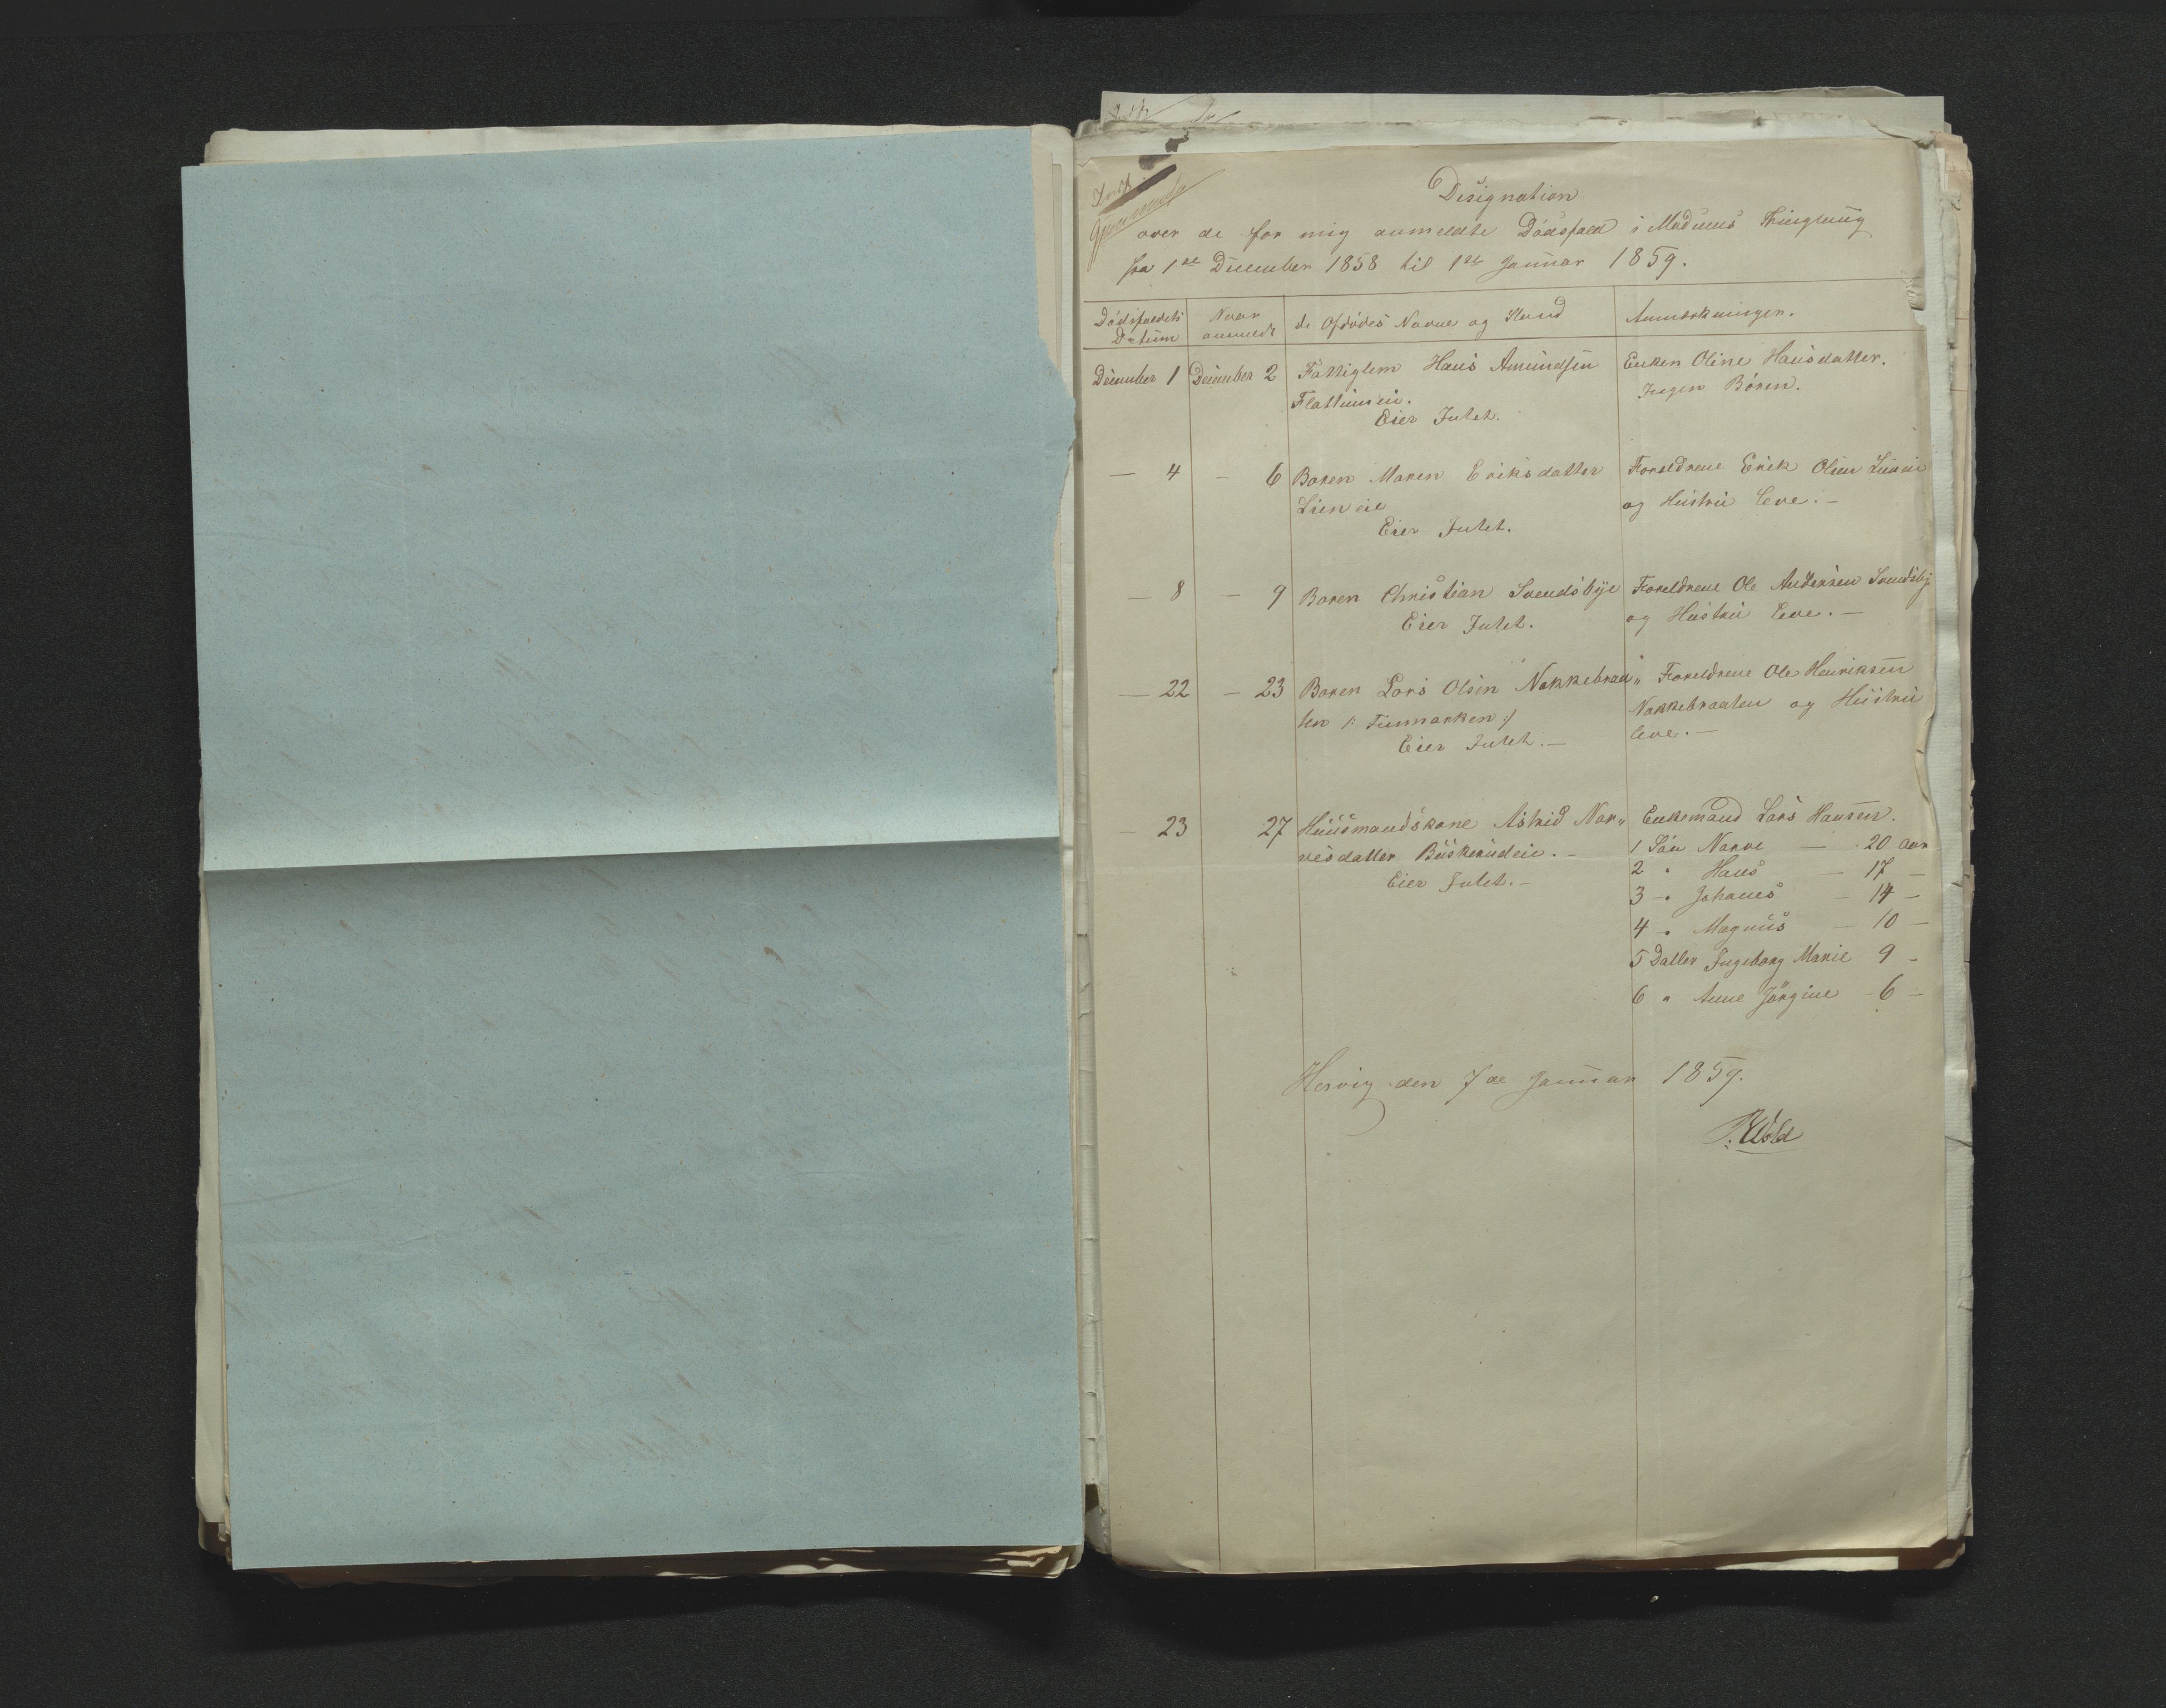 Designation
over de for mig anmeldte Dödsfald i Modums Thinglaug
fra 1de December 1858 til 1de Januar 1859.
Dödsfaldets Datum
Naar anmeldt
de Afdödes Navne og Stand
Anmærkninger.
December 1 December 2 Fattiglem Hans Amundsen Enken Oline Hansdatter.
Flattumeie. Ingen Börn.
Eier Intet.
— 4 — 6 Baren Maren Eriksdatter Foreldrene Erik Olsen Lieneie
Lieneie og Hustru leve. —
Eier Intet.
— 8 — 9 Baren Christian Svendsbye Foreldrene Ole Andersen Svendsby
Eier Intet. og Hustru leve. —
— 22 — 23 Baren Lars Olsen Nakkebraa„ Foreldrene Ole Henriksen
ten /: Finmarken :/ Nakkebraaten og Hustru
Eier Intet. — leve. —
— 23 27 Huusmandskone Astrid Nar„ Enkemand Lars Hansen.
vesdatter Buskerudeie. — 1 Sön Narve — 20 aar
Eier Intet. — 2 " Hans — 17 —
3 — " Johanes — 14 —
4 " Magnus — 10 —
5 Datter Ingeborg Marie 9 —
6 " Anne Jörgine — 6 —
Hervig den 7de Januar 1859.